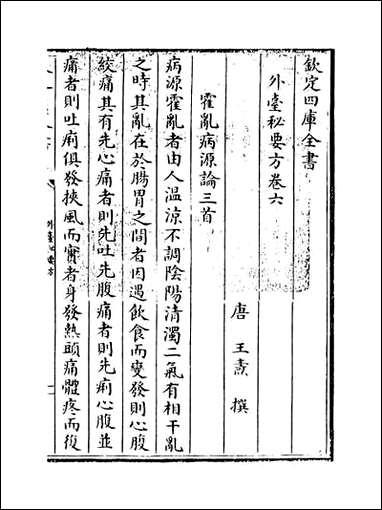 欽定四庫全書
外臺秘要方卷六
唐 王燾 撰
霍亂病源論三首
病源霍亂者由人温涼不調陰陽清濁二氣有相干亂
之時其亂在於腸胃之間者因遇飲食而變發則心腹
絞痛其有先心痛者則先吐先腹痛者則先痢心腹並
痛者則吐痢俱發挾風而實者身發熱頭痛體疼而復
外臺秘要方